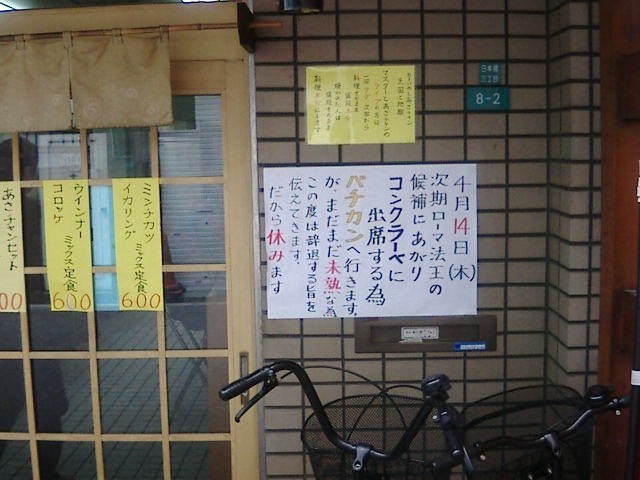 4月14日(木)
次期ローマ法王の
候補にあがり
コンクラーベに
出席する為
バチカンへ行きます
が、まだまだ未熟な為
この度は辞退する旨を
伝えてきます.
だから休みます
日本橋
三丁目
8-2
天国と地獄
マスターとあさチャンの
ミンチカツ
イカリング
ミックス定食
600
ウインナー
コロッケ
ミックス定食
600
あさチャンセット
00